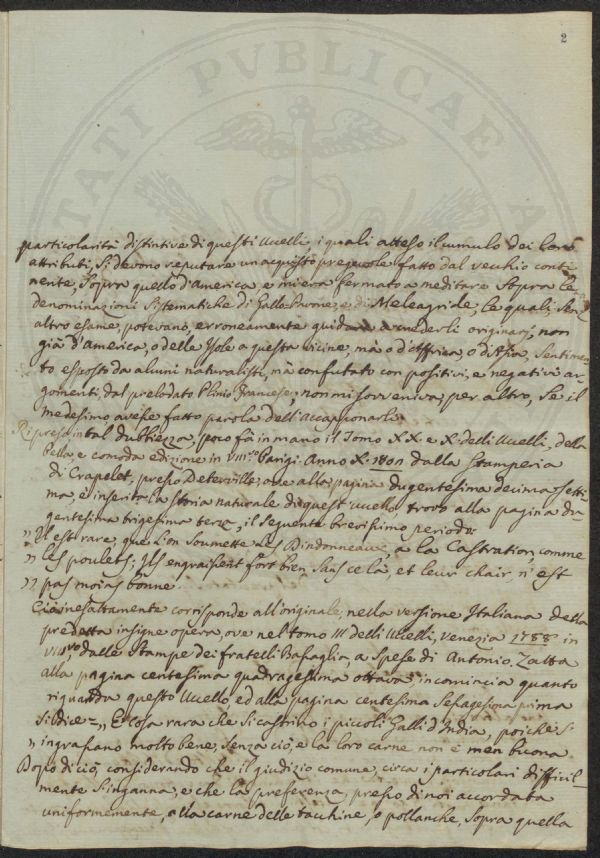 2
TATI PVBLICAE
particolarità distintive di questi Uccelli, i quali atteso il cumulo dei loro
attributi, si devono reputare un acquisto pregevole fatto dal vecchio conti=
nente, sopra quello d'America, e mi era fermato a meditare sopra le
denominazioni sistematiche di Gallo-Pavone, e di Meleagride, le quali senz'
altro esame, potevano, erroneamente guidare a crederli originarj, non
già d'America, o delle Isole a questa vicine, mà o d'Affrica, o di Asia, sentimen=
to esposto da alcuni naturalisti, mà confutato con positivi, e negativi ar=
gomenti, dal prelodato Plinio Francese; non mi sovveniva, per altro, se il
medesimo avesse fatto parola dell'Accapponarli.
Ripreso in tal dubbiezza, poco fà in mano il Tomo XX. e X. delli Uccelli, della
bella, e comoda edizione in VIII.vo Parigi Anno X. 1801 dalla Stamperia
di Crapelet, presso Deterville; ove alla pagina dugentesima decima setti=
ma, è inserita la storia naturale di quest'uccello, trovo alla pagina du=
gentesima trigesima terza, il seguente brevissimo periodo:
" Il est rare, que l'on soumette les Dindonneaux, a la Castration, comme
" les poulets; ils engraissent fort bien sans cela, et leur chair, n'est
" pas moins bonne.
Ciò inesattamente corrisponde all'originale, nella versione Italiana della
predetta insigne opera, ove nel tomo III delli Uccelli, Venezia 1788 in
VIII.vo dalle stampe dei fratelli Bassaglia, a spese di Antonio Zatta
alla pagina centesima quadragesima ottava, incomincia quanto
riguarda questo Uccello, ed alla pagina centesima sessagesima prima
si dice = " E' cosa rara che si castrino i piccoli Galli d'India, poiche s'
" ingrassano molto bene, senza ciò, e la loro carne non è men buona.
Dopo di ciò, considerando che il giudizio comune, circa i particolari difficil=
mente s'inganna, e che la preferenza, presso di noi accordata
uniformemente, alla carne delle tacchine, o pollanche, sopra quella